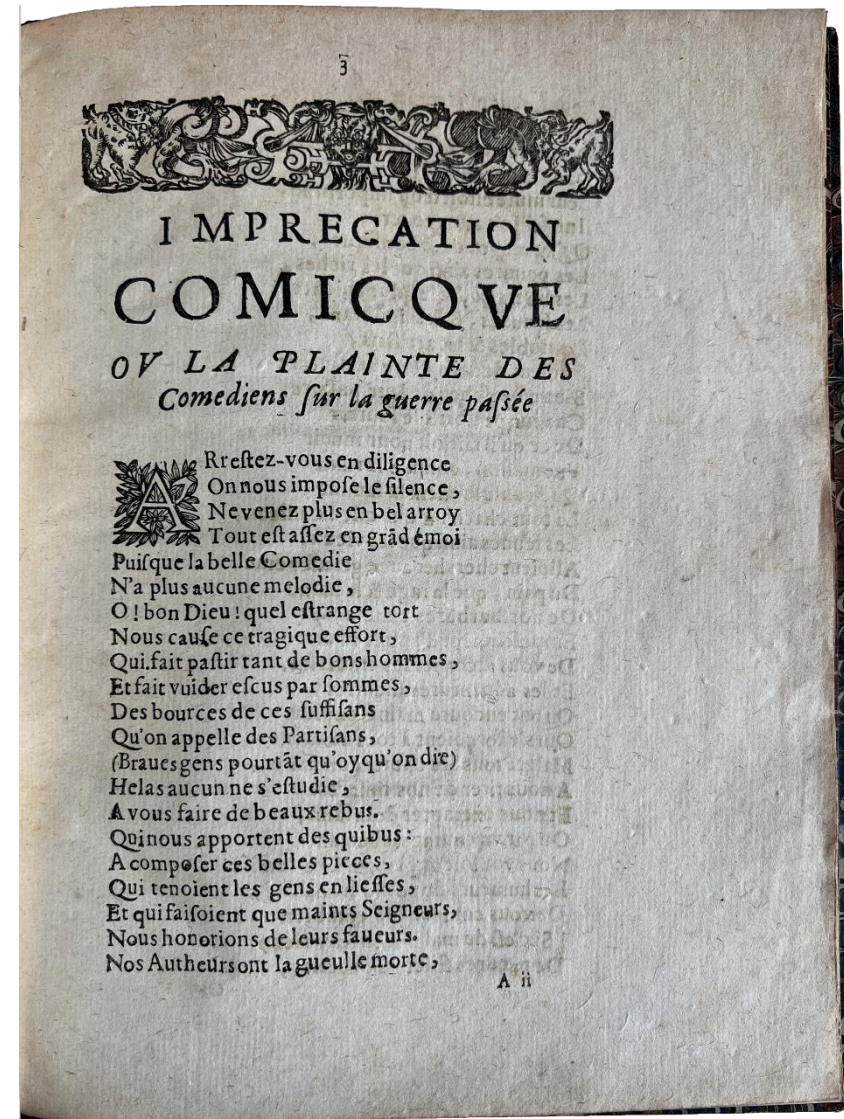 3
IMPRECATION
COMICQVE
OV LA PLAINTE DES
Comediens ſur la guerre paſsée
ARreſtez-vous en diligence
On nous impoſe le ſilence,
Ne venez plus en bel arroy
Tout eſt aſſez en grãd émoi
Puiſque la belle Comedie
N'a plus aucune melodie,
O! bon Dieu! quel eſtrange tort
Nous cauſe ce tragique effort,
Qui.fait paſtir tant de bons hommes,
Et fait vuider eſcus par ſommes,
Des bources de ces ſuffiſans
Qu'on appelle des Partiſans,
(Braues gens pourtãt qu'oy qu'on die)
Helas aucun ne s'eſtudie,
A vous faire de beaux rebus.
Qui nous apportent des quibus:
A compoſer ces belles pieces,
Qui tenoient les gens en lieſſes,
Et qui faiſoient que maints Seigneurs,
Nous honorions de leurs faueurs.
Nos Autheurs ont la gueulle morte,
A ii